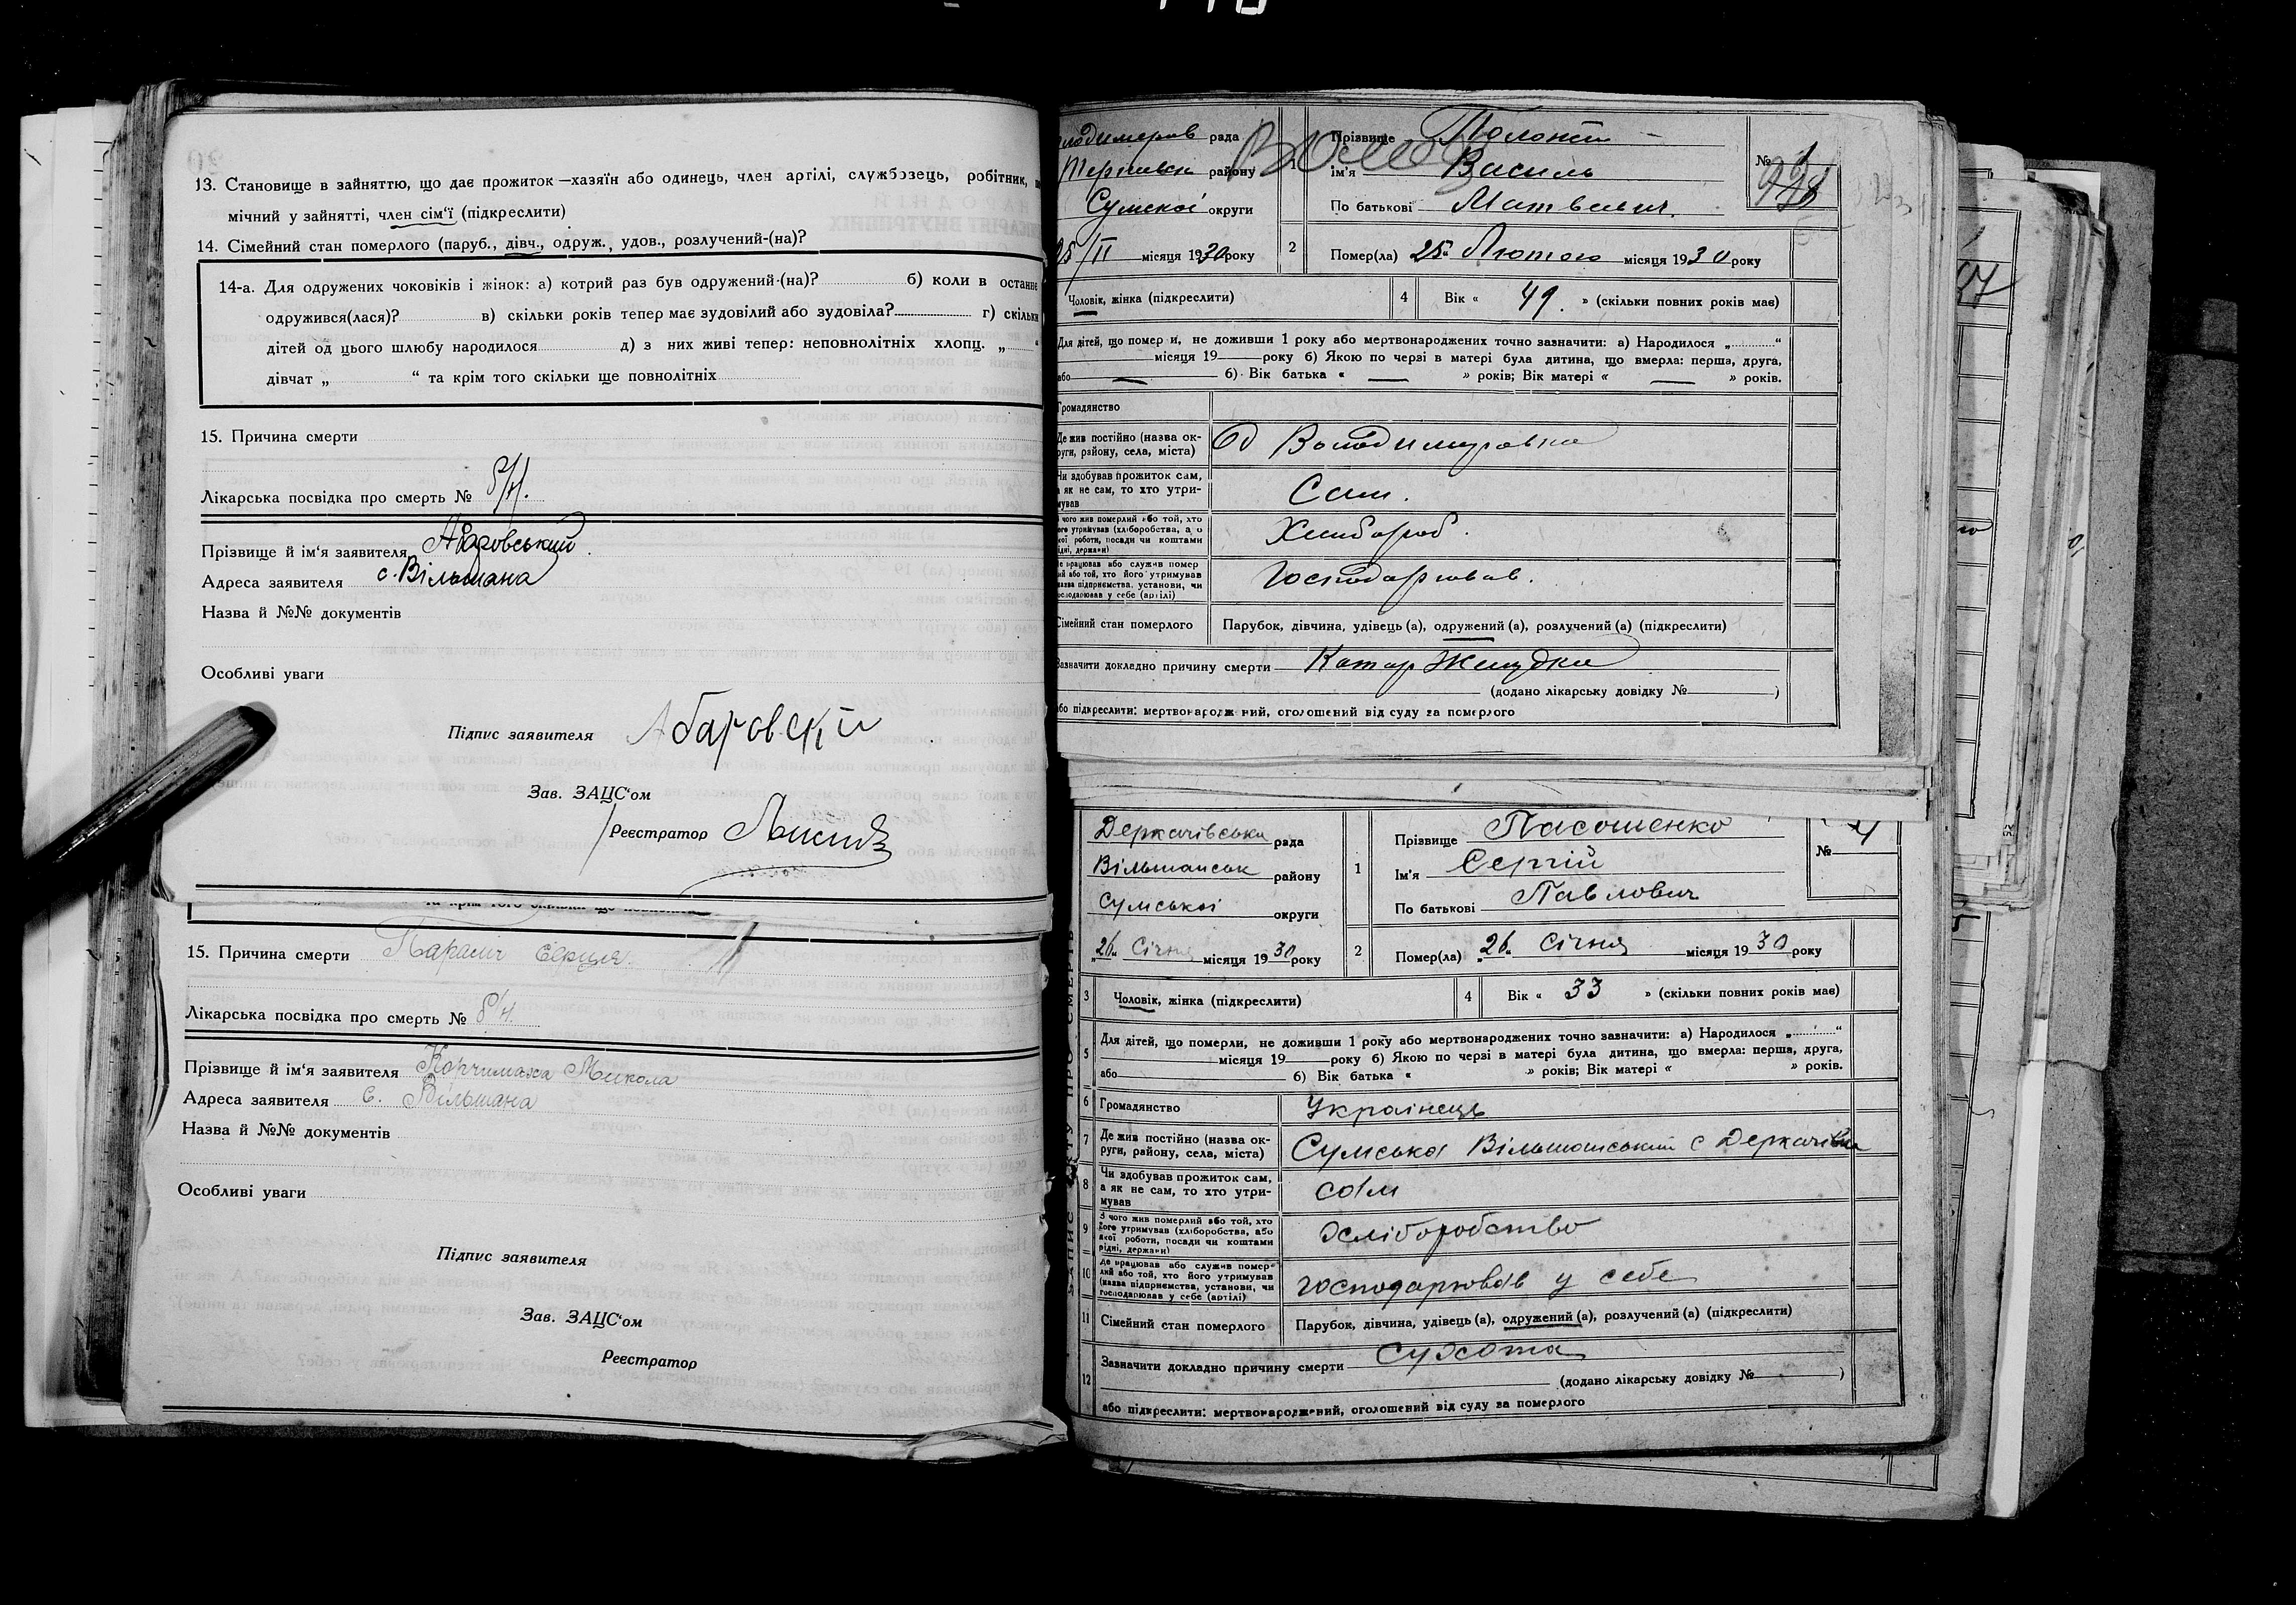 13. Становище в зайняттю, що дає прожиток—хазяїн або одинець, член артілі, службовець, робітник,
мічний у зайнятті, член сім'ї (підкреслити)
14. Сімейний стан померлого (паруб., дівч., одруж., удов., розлучений-(на)?
14-а. Для одружених чоковіків і жінок: а) котрий раз був одружений-(на)? б) коли в останнє
одружився(лася)? в) скільки років тепер має зудовілий або зудовіла? г) скільки
дітей од цього шлюбу народилося д) з них живі тепер: неповнолітніх хлопц. „ “
дівчат „ “ та крім того скільки ще повнолітніх
15. Причина смерти
Лікарська посвідка про смерть № б/н.
Прізвище й ім'я заявителя
Адреса заявителя с. Вільшана
Назва й №№ документів
Особливі уваги
Підпис заявителя
Зав. ЗАЦС'ом
Реєстратор
15. Причина смерти Параліч серця
Лікарська посвідка про смерть № б/н.
Прізвище й ім'я заявителя Микола
Адреса заявителя с. Вільшана
Назва й №№ документів
Особливі уваги
Підпис заявителя
Зав. ЗАЦС'ом
Реєстратор
рада
району
Сумської округи
25/II місяця 1930 року
1
Прізвище
ім'я Василь
По батькові Матвеевич.
№ 1
2
Помер(ла) 25 Лютого місяця 1930 року
Чоловік, жінка (підкреслити)
4
Вік « 49. » (скільки повних років має)
Для дітей, що померли, не доживши 1 року або мертвонароджених точно зазначити: а) Народилося „ “
місяця 19 року б) Якою по черзі в матері була дитина, що вмерла: перша, друга,
або б) Вік батька « » років; Вік матері « » років.
Громадянство
Де жив постійно (назва ок-
руги, району, села, міста)
Чи здобував прожиток сам,
а як не сам, то хто утри-
мував
Сам.
З чого жив померлий або той, хто
його утримував (хліборобства, або
якої роботи, посади чи коштами
рідні, держави)
Хлибороб.
Де працював або служив помер
лий або той, хто його утримував
(назва підприємства, установи, чи
господарював у себе (артілі)
Господарював.
Сімейний стан померлого
Парубок, дівчина, удівець (а), одружений (а), розлучений (а) (підкреслити)
Зазначити докладно причину смерти Катар Желудка
(додано лікарську довідку № )
або підкреслити: мертвонароджений, оголошений від суду за померлого
Деркачівська рада
Вільшанськ району
Сумської округи
„26“ Січня місяця 1930 року
1
Прізвище Пасошенко
Ім'я Сергій
По батькові Павлович
№ 4
2
Помер(ла) „26“ Січня місяця 1930 року
3
Чоловік, жінка (підкреслити)
4
Вік « 33 » (скільки повних років має)
5
Для дітей, що померли, не доживши 1 року або мертвонароджених точно зазначити: а) Народилося „ “
місяця 19 року б) Якою по черзі в матері була дитина, що вмерла: перша, друга,
або б) Вік батька « » років; Вік матері « » років.
6
Громадянство
Українець
7
Де жив постійно (назва ок-
руги, району, села, міста)
Сумська Вільшанський с Деркачівка
8
Чи здобував прожиток сам,
а як не сам, то хто утри-
мував
сам
9
З чого жив померлий або той, хто
його утримував (хліборобства, або
якої роботи, посади чи коштами
рідні, держави)
хліборобство
10
Де працював або служив помер-
лий або той, хто його утримував
(назва підприємства, установи, чи
господарював у себе (артілі)
господарював у себе
11
Сімейний стан померлого
Парубок, дівчина, удівець (а), одружений (а), розлучений (а) (підкреслити)
12
Зазначити докладно причину смерти Сухота
(додано лікарську довідку № )
або підкреслити: мертвонароджений, оголошений від суду за померлого